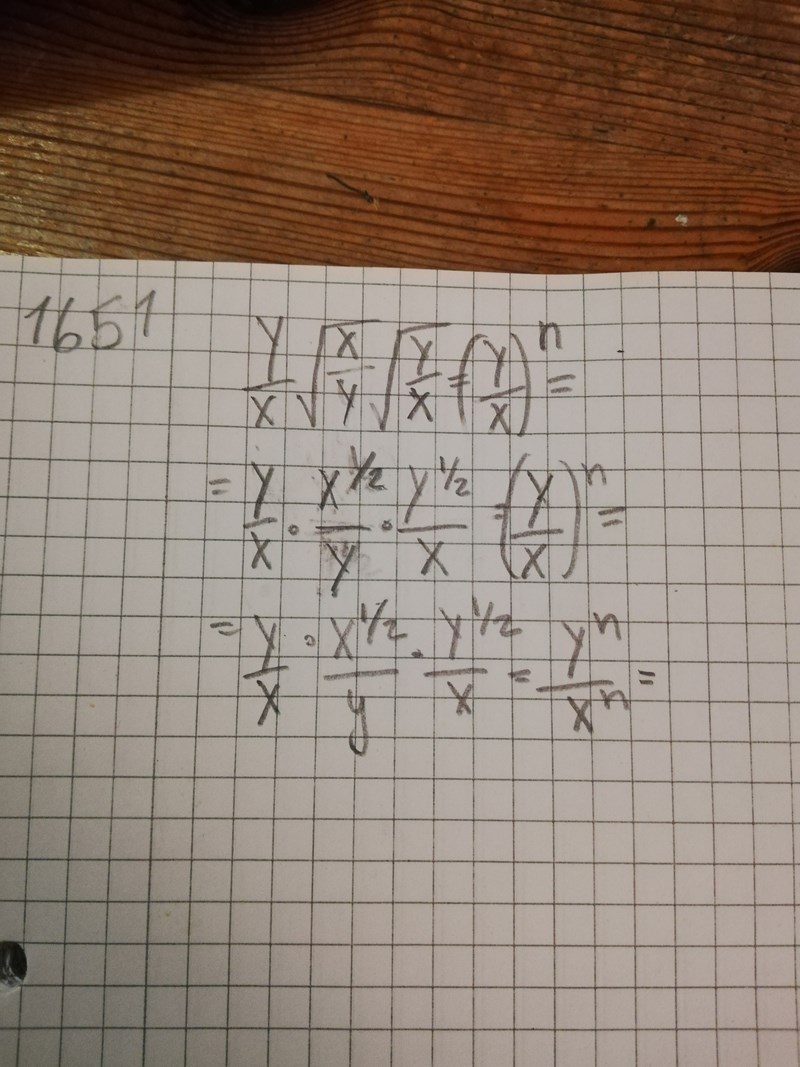 1651
y/x √(x/y) √(y/x) = (y/x)^n =
= y/x · x^1/2 / y · y^1/2 / x = (y/x)^n =
= y/x · x^1/2 / y · y^1/2 / x = y^n / x^n =